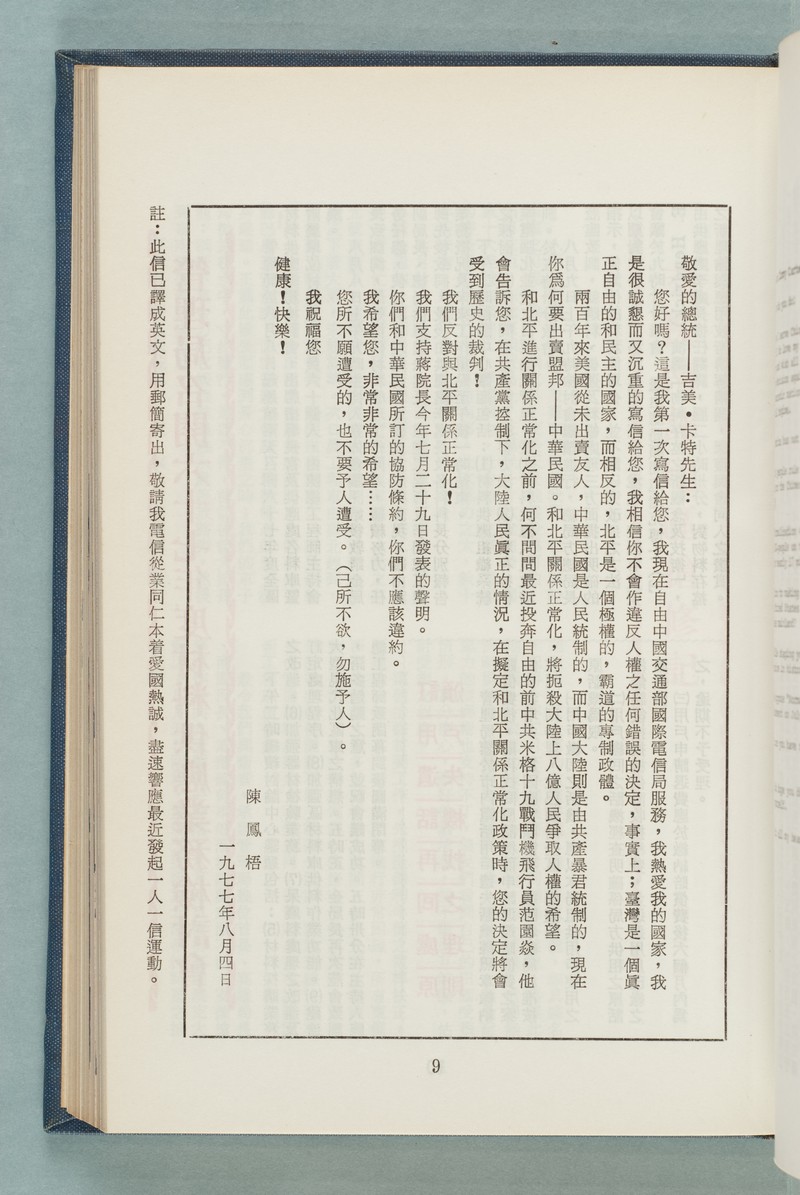 敬愛的總統——吉美•卡特先生：
您好嗎？這是我第一次寫信給您，我現在自由中國交通部國際電信局服務，我熱愛我的國家，我
是很誠懇而又沉重的寫信給您，我相信你不會作違反人權之任何錯誤的決定，事實上；臺灣是一個眞
正自由的和民主的國家，而相反的，北平是一個極權的，霸道的專制政體。
兩百年來美國從未出賣友人，中華民國是人民統制的，而中國大陸則是由共產暴君統制的，現在
你爲何要出賣盟邦——中華民國。和北平關係正常化，將扼殺大陸上八億人民爭取人權的希望。
和北平進行關係正常化之前，何不問問最近投奔自由的前中共米格十九戰鬥機飛行員范園焱，他
會告訴您，在共產黨控制下，大陸人民眞正的情況，在擬定和北平關係正常化政策時，您的決定將會
受到歷史的裁判！
我們反對與北平關係正常化！
我們支持蔣院長今年七月二十九日發表的聲明。
你們和中華民國所訂的協防條約，你們不應該違約。
我希望您，非常非常的希望……
您所不願遭受的，也不要予人遭受。（己所不欲，勿施予人）。
我祝福您
健康！快樂！
陳鳳梧
一九七七年八月四日
註：此信已譯成英文，用郵簡寄出，敬請我電信從業同仁本着愛國熱誠，盡速響應最近發起一人一信運動。
9